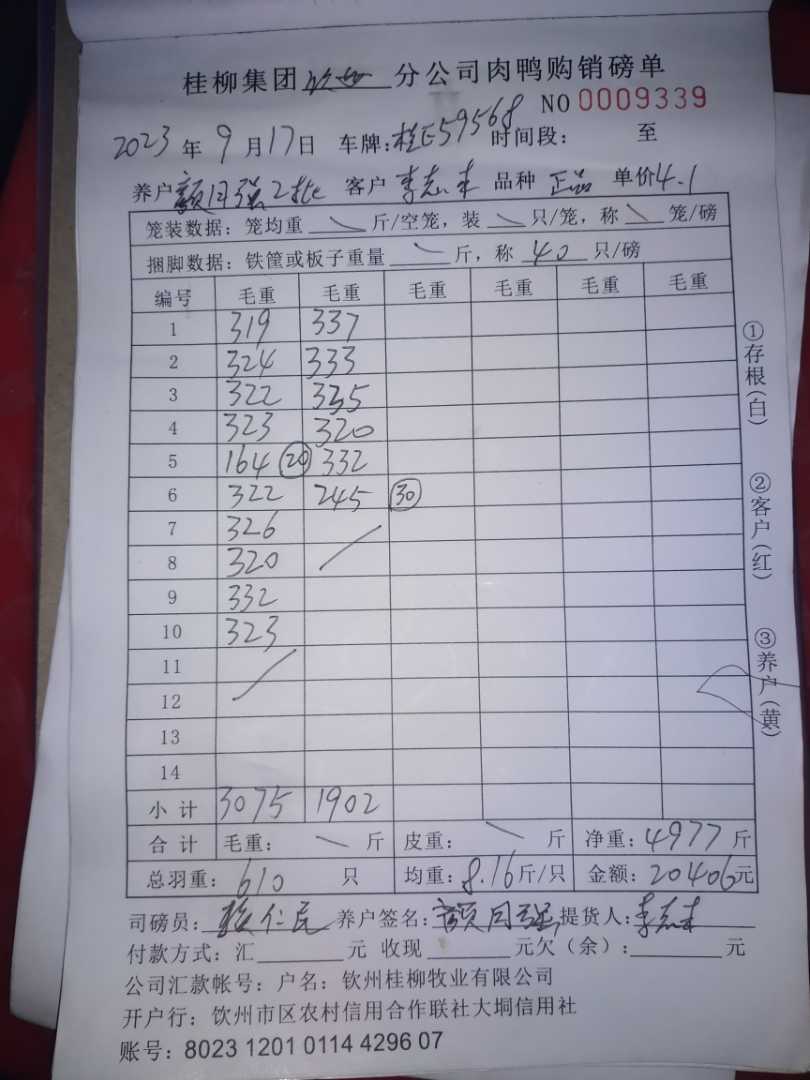 桂柳集团钦州分公司肉鸭购销磅单
NO 0009339
2023年9月17日 车牌:桂E59568 时间段: 至
养户 颜同强2批 客户 李志来 品种 正品 单价4.1
笼装数据:笼均重 斤/空笼,装 只/笼,称 笼/磅
捆脚数据:铁筐或板子重量 斤,称 40 只/磅
编号 毛重 毛重 毛重 毛重 毛重 毛重
1 319 337
2 324 333
3 322 335
4 323 320
5 164 20 332
6 322 245 30
7 326
8 320
9 332
10 323
11
12
13
14
小计 3075 1902
合计 毛重: 斤 皮重: 斤 净重:4977斤
总羽重: 610 只 均重:8.16斤/只 金额:20406元
司磅员: 仁民 养户签名:颜同强 提货人:李志来
付款方式:汇 元 收现 元欠(余): 元
公司汇款帐号:户名:钦州桂柳牧业有限公司
开户行:饮州市区农村信用合作联社大垌信用社
账号:8023 1201 0114 4296 07
①存根(白)
②客户(红)
③养户(黄)